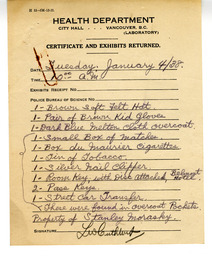 HEALTH DEPARTMENT
CITY HALL . . . VANCOUVER, B.C.
(LABORATORY)
CERTIFICATE AND EXHIBITS RETURNED.
DATE Tuesday, January 4/38.
TIME A.M.
EXHIBITS RECEIPT NO.
POLICE BUREAU OF SCIENCE NO.
1- Brown Soft Felt Hat
1- Pair of Brown Kid Gloves
1- Dark Blue Melton Cloth overcoat
1- Small Box of Matches
1- Box du Maurier Cigarettes
1- Tin of Tobacco
1- Silver Nail Clipper
1- Room Key, with Disk attached,
2- Pass Keys
1- Street Car Transfer
These were found in overcoat Pockets
Property of Stanley Morasky.
SIGNATURE